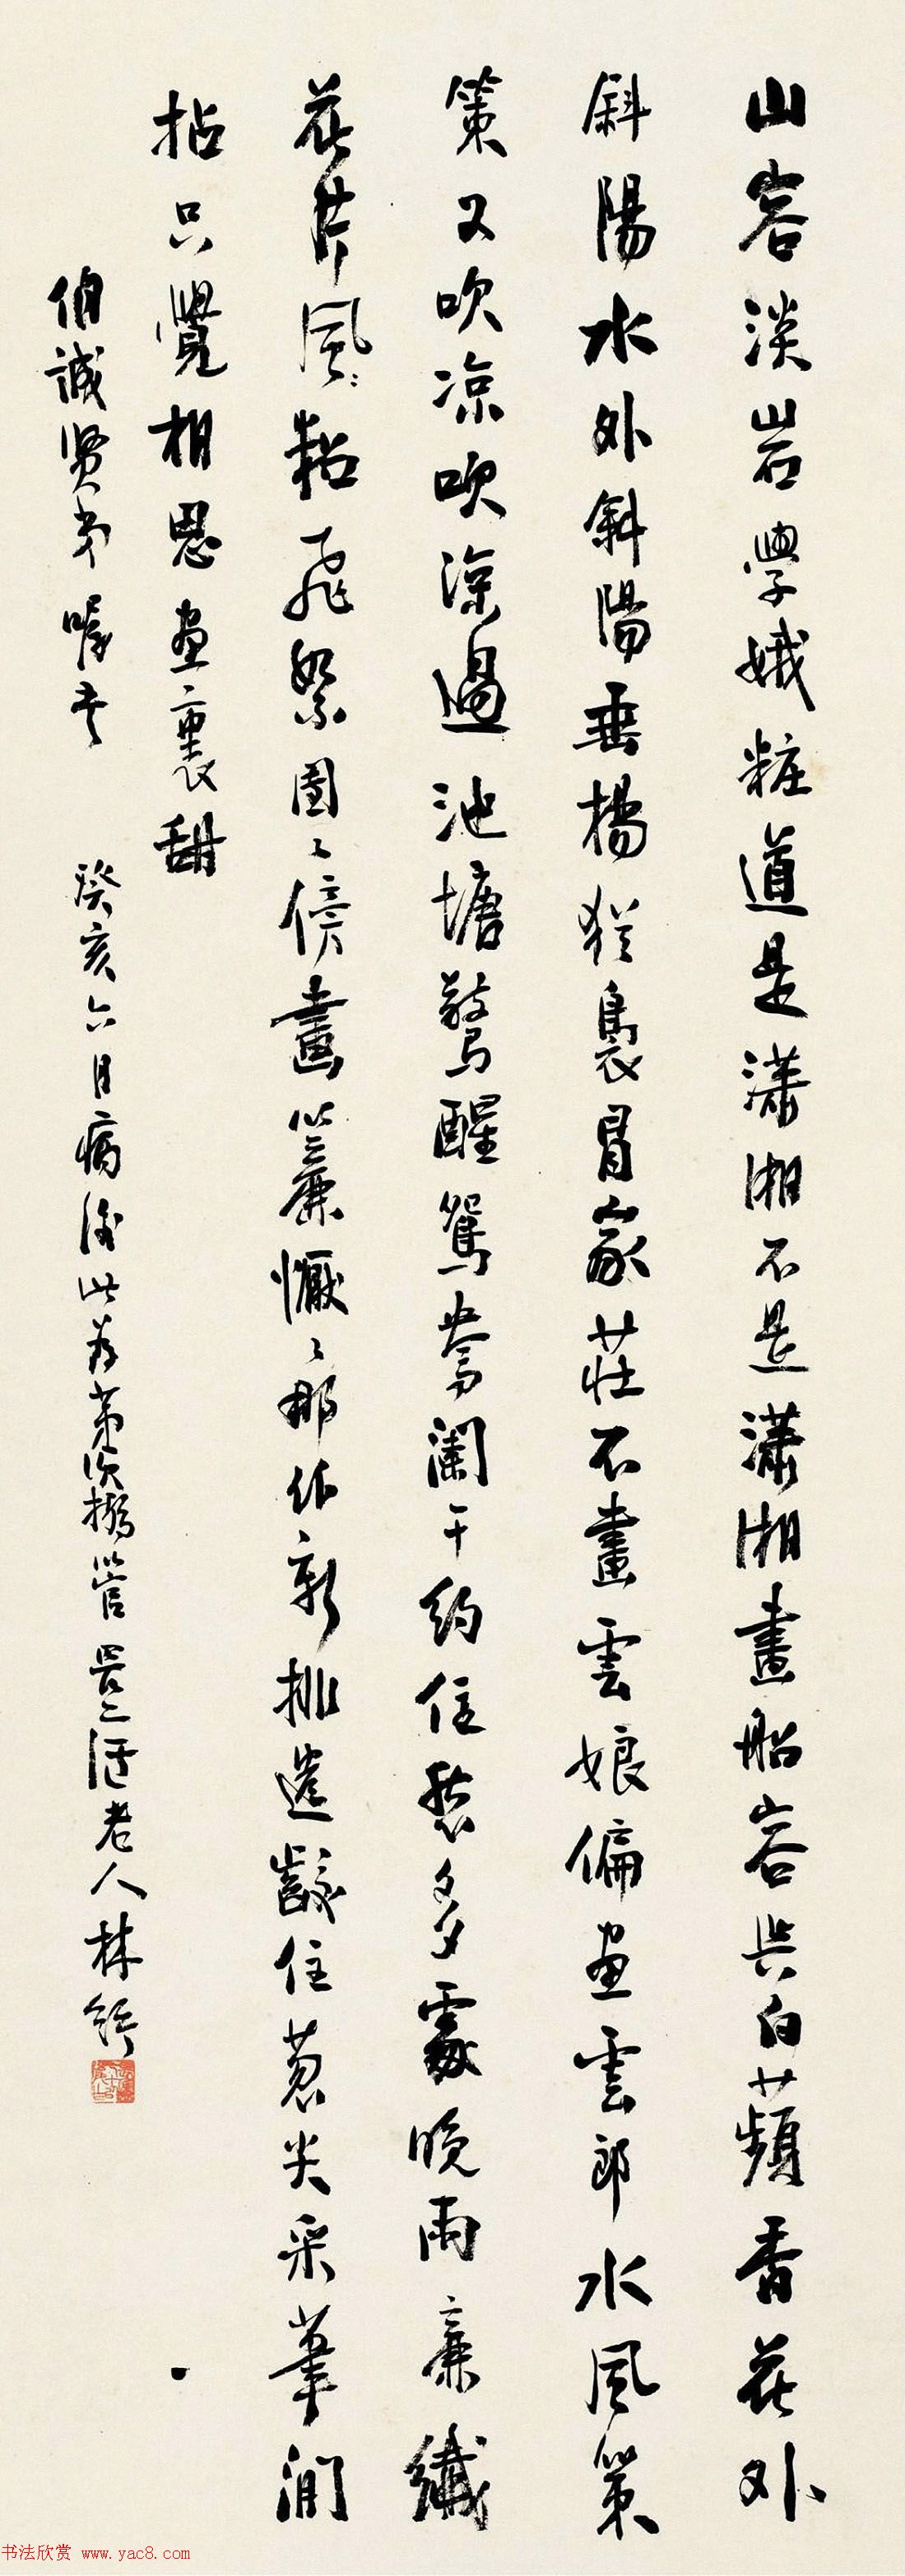 山容淡岩學娥粧道是瀟湘不是瀟湘畫船容与白蘋香花外
斜陽水外斜陽垂楊猶裊冒家莊不畫雲娘偏画雲郎水風策
策又吹凉吹凉過池塘驚醒鴛鴦闌干約住愁多處晚雨廉纖
花片風黏飛絮團〻傍畫簾懨〻那作新排遣齩住葱尖采筆閒
拈只覺相思画裏甜
伯誠賢弟嘱書 癸亥六月病後此為第次搦管 畏廬老人林紓
书法欣赏 www.yac8.com